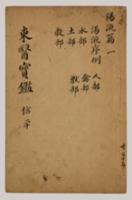 湯液篇一
湯液序例
水部
土部
穀部
人部
禽部
獸部
東醫寶鑑